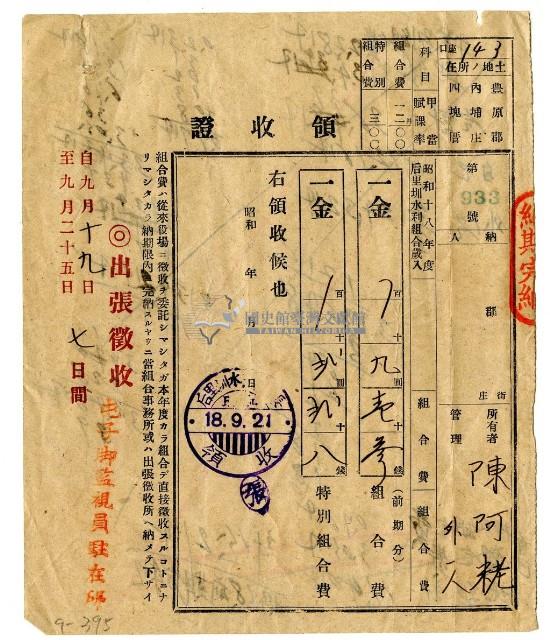 口座 143
土地ノ所在
豊原郡
內埔庄
四塊厝
科目
甲當賦課率
組合費
一二〇〇
特別組合費
三〇〇
領收證
第 933 號
納人
昭和十八年度
后里圳水利組合歲入
郡
街庄
所有者
管理
陳阿
外 一人
組合費
組合費
一金
百 十 九 圓 十 錢
組合費
(前期分)
一金
百 十 圓 十 八 錢
特別組合費
右領收候也
昭和 年 月 日
18.9.21
領收
張
組合費ハ從來役場ニ徵收ヲ委託シマシタガ本年度カラ組合デ直接徵收スルコトニナ
リマシタカラ納期限內ニ完納スルヤウニ當組合事務所或ハ出張徵收所ヘ納メテ下サイ
◎出張徵收
自九月十九日
至九月二十五日
七日間
脚監視員駐在所
納期完納
國史館臺灣文獻館
TAIWAN HISTORICA
9-395